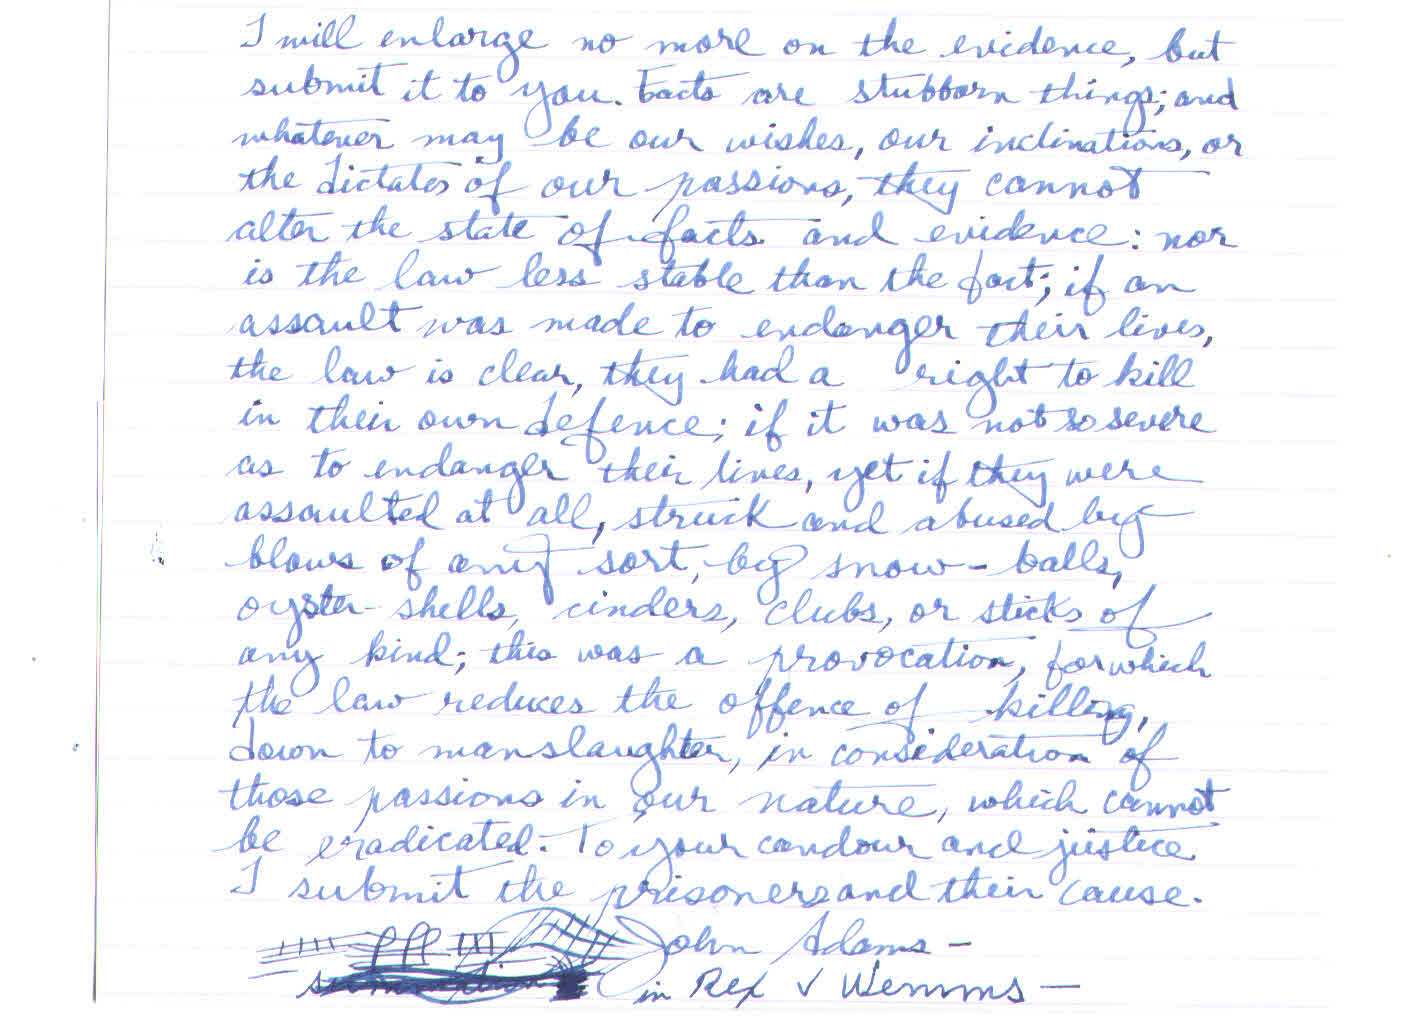 I will enlarge no more on the evidence, but
submit it to you. Facts are stubborn things; and
whatever may be our wishes, our inclinations, or
the dictates of our passions, they cannot
alter the state of facts and evidence: nor
is the law less stable than the fact; if an
assault was made to endanger their lives,
the law is clear, they had a right to kill
in their own defence; if it was not so severe
as to endanger their lives, yet if they were
assaulted at all, struck and abused by
blows of any sort, by snow-balls,
oyster-shells, cinders, clubs, or sticks of
any kind; this was a provocation, for which
the law reduces the offence of killing,
down to manslaughter, in consideration of
those passions in our nature, which cannot
be eradicated. To your candour and justice
I submit the prisoners and their cause.
John Adams -
in Rex v Wemms -